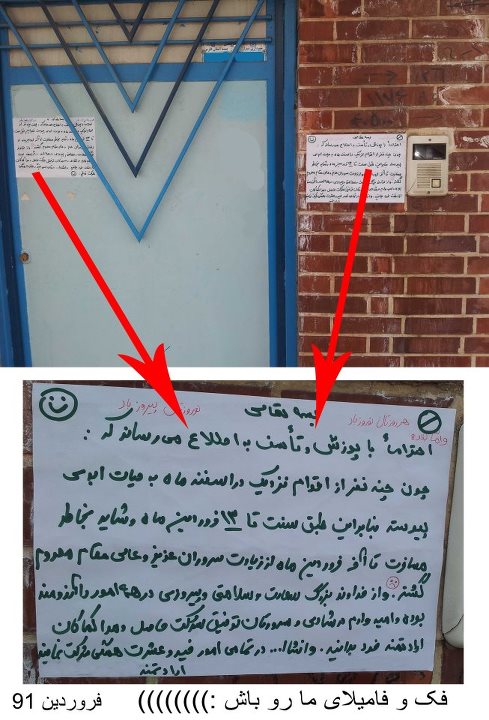 بسمه تعالی
نوروزتان پیروز باد
هر روزتان نوروز باد
احتراماً با پوزش و تأسف به اطلاع می رساند که :
چون چند نفر از اقوام نزدیک در اسفند ماه به حیات ابدی
پیوسته بنابراین طبق سنت تا ۱۳ فروردین ماه و شاید بخاطر
مسافرت تا آخر فروردین ماه از زیارت سروران عزیز و عالی مقام محروم
گشته . و از خداوند بزرگ سعادت و سلامتی و پیروزی در همه امور را آرزومند
بوده و امیدوارم در شادی و سرورتان توفیق شرکت حاصل و مرا کماکان
ارادتمند خود بدانید . وانشاا... در تمامی امور خیر و عشرت همگی شرکت نمایند
ارادتمند
فک و فامیلای ما رو باش :))))))))) فروردین 91